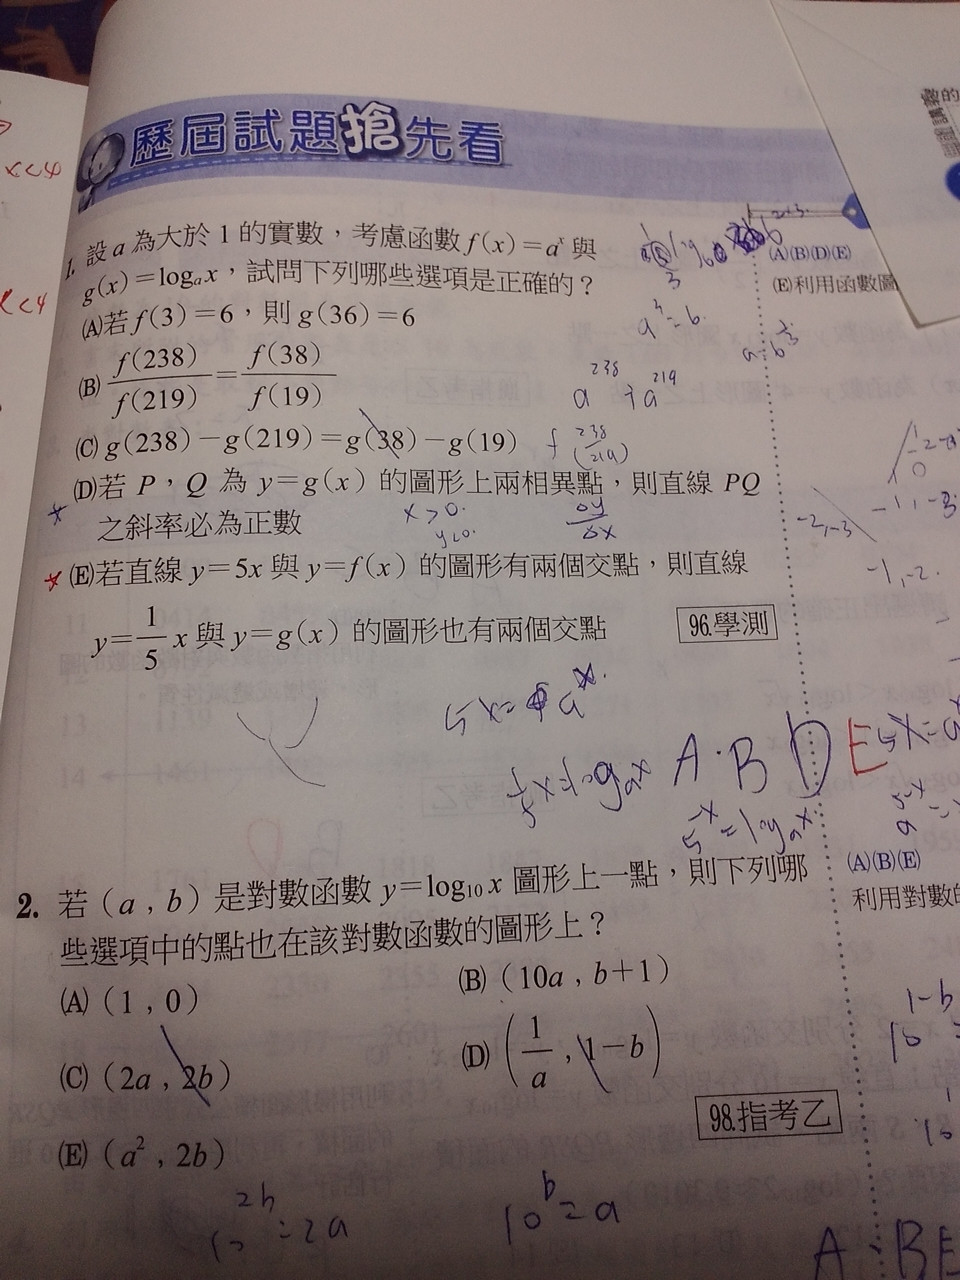 歷屆試題搶先看
x<4
x<4
1. 設 a 為大於 1 的實數，考慮函數 f(x)=aˣ 與
g(x)=logₐx，試問下列哪些選項是正確的？
(A)若 f(3)=6，則 g(36)=6
(B) f(238)/f(219) = f(38)/f(19)
(C) g(238)－g(219)=g(38)－g(19)
(D)若 P，Q 為 y=g(x) 的圖形上兩相異點，則直線 PQ
之斜率必為正數
(E)若直線 y=5x 與 y=f(x) 的圖形有兩個交點，則直線
y=1/5 x 與 y=g(x) 的圖形也有兩個交點
96.學測
(A)(B)(D)(E)
(E)利用函數圖
a³=6
a²³⁸
a²¹⁹
f(238/219)
x>0
y<0
Δy/Δx
-2,-3
-1,-3
-1,-2
1/5 x=logₐx
A.B D E
5x=a
2. 若（a , b）是對數函數 y=log₁₀ x 圖形上一點，則下列哪
些選項中的點也在該對數函數的圖形上？
(A)（1 , 0）
(B)（10a , b+1）
(C)（2a , 2b）
(D)(1/a , 1－b)
(E)（a² , 2b）
98.指考乙
(A)(B)(E)
利用對數的
10²ᵇ=2a
10ᵇ=a
A.BE